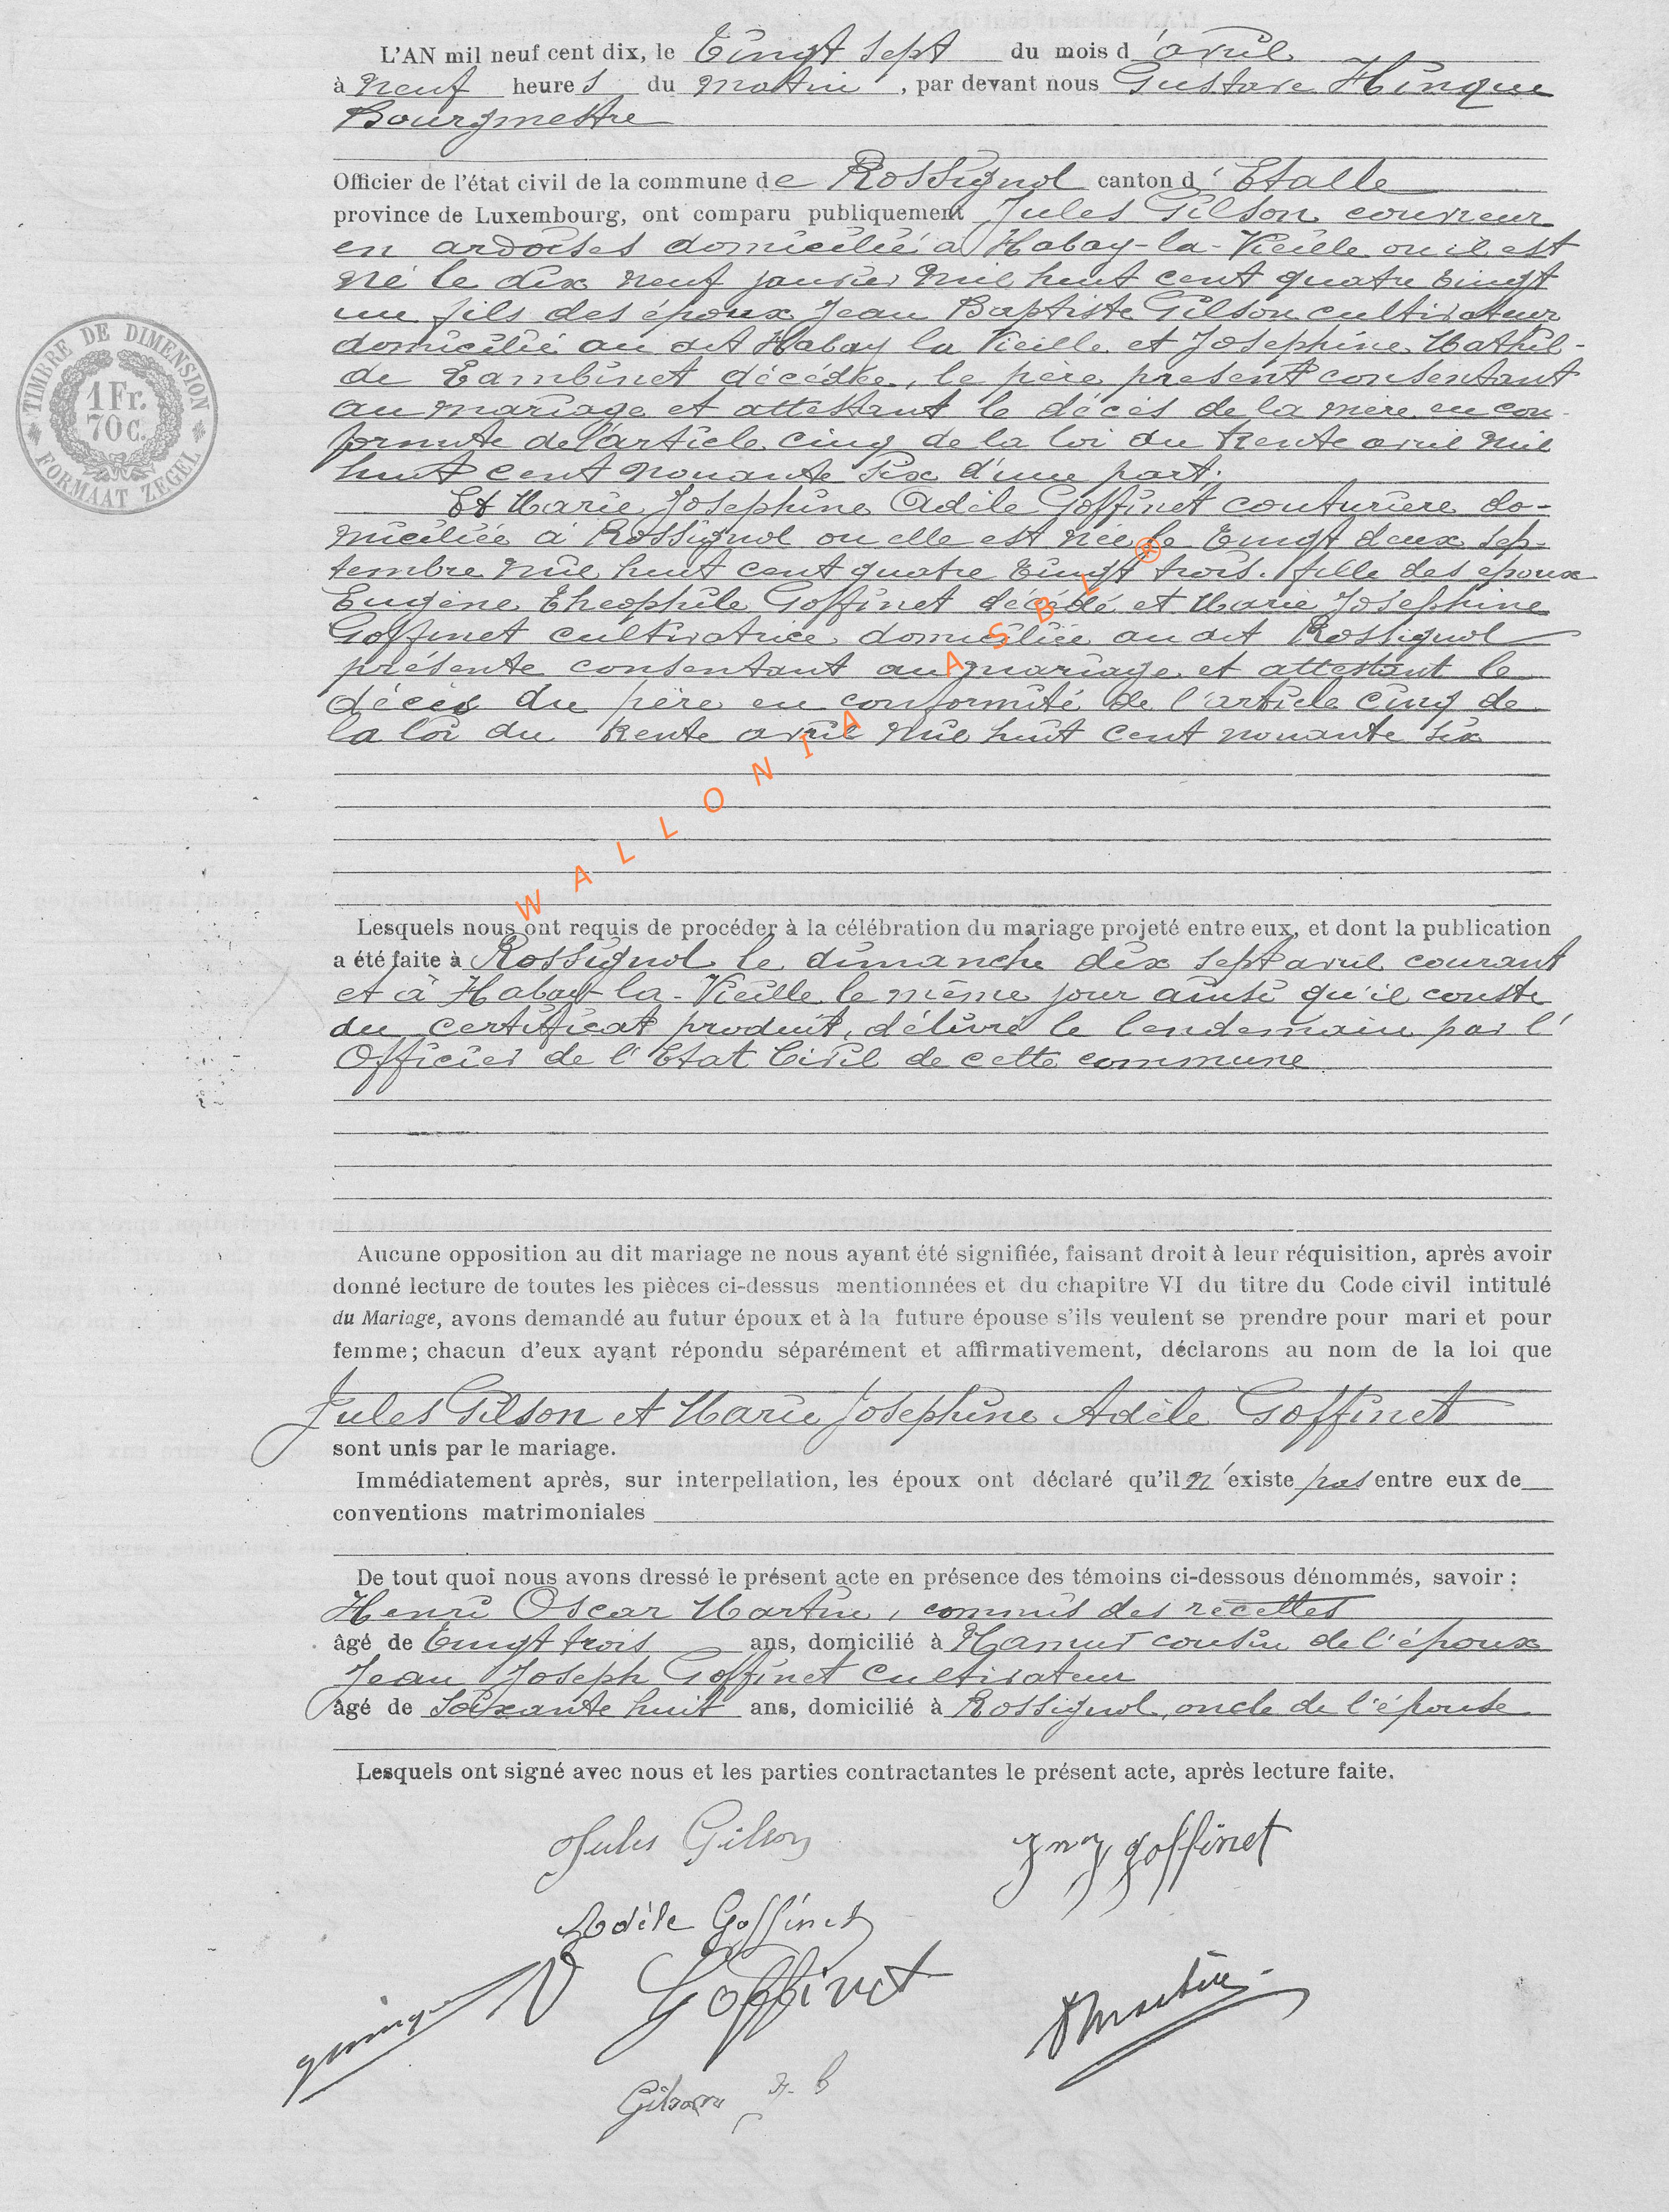 L'AN mil neuf cent dix, le Vingt sept du mois d'avril
à neuf heures du matin, par devant nous Gustave Hinque
Bourgmestre
Officier de l'état civil de la commune de Rossignol canton d'Etalle
province de Luxembourg, ont comparu publiquement Jules Gilson couvreur
en ardoises domicilié à Habay-la-Vieille ou il est
né le dix neuf janvier mil huit cent quatre vingt
un fils des époux Jean Baptiste Gilson cultivateur
domicilié au dit Habay la Vieille et Josephine Mathil-
de Lambinet décédée, le père présent consentant
au mariage et attestant le décès de la mère en con-
formité de l'article cinq de la loi du trente avril mil
huit cent nonante six d'une part;
Et Marie Josephine Adèle Goffinet couturière do-
miciliée à Rossignol ou elle est née le Vingt deux sep-
tembre mil huit cent quatre vingt trois. fille des époux
Eugène Théophile Goffinet décédé et Marie Josephine
Goffinet cultivatrice domiciliée au dit Rossignol
présente consentant au mariage et attestant le
décès du père en conformité de l'article cinq de
la loi du trente avril mil huit cent nonante six
Lesquels nous ont requis de procéder à la célébration du mariage projeté entre eux, et dont la publication
a été faite à Rossignol le dimanche dix sept avril courant
et à Habay-la-Vieille le même jour ainsi qu'il conste
du certificat produit, délivré le lendemain par l'
Officier de l'Etat Civil de cette commune
Aucune opposition au dit mariage ne nous ayant été signifiée, faisant droit à leur réquisition, après avoir
donné lecture de toutes les pièces ci-dessus mentionnées et du chapitre VI du titre du Code civil intitulé
du Mariage, avons demandé au futur époux et à la future épouse s'ils veulent se prendre pour mari et pour
femme; chacun d'eux ayant répondu séparément et affirmativement, déclarons au nom de la loi que
Jules Gilson et Marie Josephine Adèle Goffinet
sont unis par le mariage.
Immédiatement après, sur interpellation, les époux ont déclaré qu'il n'existe pas entre eux de
conventions matrimoniales
De tout quoi nous avons dressé le présent acte en présence des témoins ci-dessous dénommés, savoir :
Henri Oscar Martin, commis des recettes
âgé de Vingt trois ans, domicilié à Namur cousin de l'époux
Jean Joseph Goffinet cultivateur
âgé de soixante huit ans, domicilié à Rossignol, oncle de l'épouse
Lesquels ont signé avec nous et les parties contractantes le présent acte, après lecture faite.
Jules Gilson
goffinet
Adèle Goffinet
Goffinet
Martin
Gilson J. B
TIMBRE DE DIMENSION
1 Fr.
70 c.
FORMAAT ZEGEL
WALLONIA ASBL ®